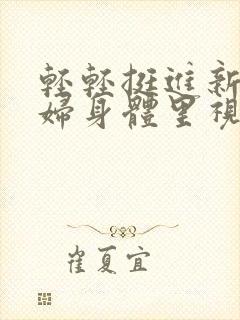 輕輕挺進新
婦身體里視
崔夏宜